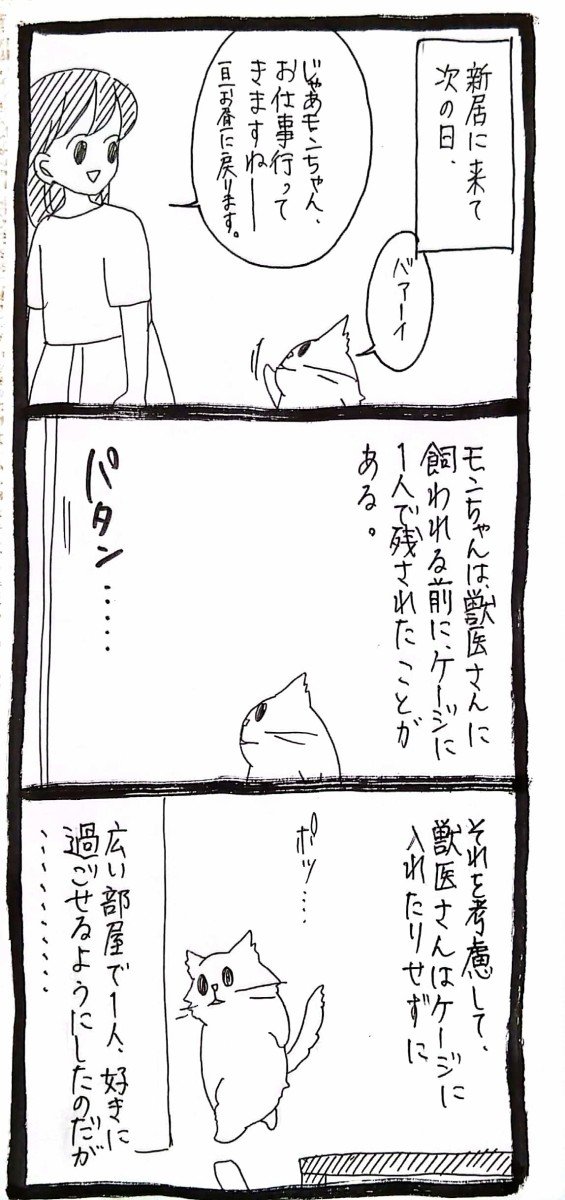 新居に来て
次の日、
じゃあモンちゃん、
お仕事行って
きますねー
一旦お昼に戻ります。
バァーイ
モンちゃんは、獣医さんに
飼われる前に、ケージに
1人で残されたことが
ある。
パタン……
それを考慮して、
獣医さんはケージに
入れたりせずに
ポツ…
広い部屋で1人、好きに
過ごせるようにしたのだが
…………